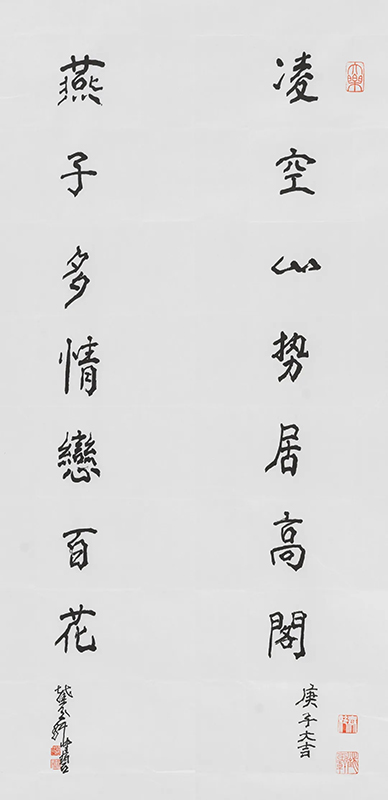 凌空山势居高閣
庚子大吉
燕子多情戀百花